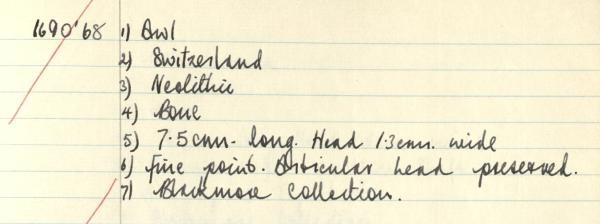 1690'68 1) Awl
2) Switzerland
3) Neolithic
4) Bone
5) 7.5cm. long. Head 1.3cm. wide
6) Fine point. Articular head preserved.
7) Blackmore Collection.